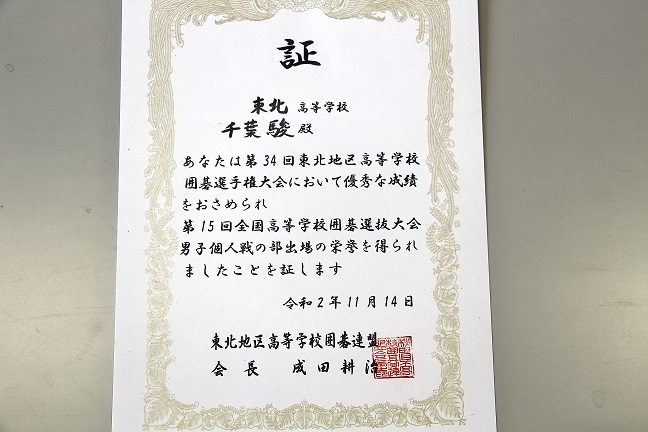 証
東北 高等学校
千葉駿 殿
あなたは第34回東北地区高等学校
囲碁選手権大会において優秀な成績
をおさめられ
第15回全国高等学校囲碁選抜大会
男子個人戦の部出場の栄誉を得られ
ましたことを証します
令和2年11月14日
東北地区高等学校囲碁連盟
会長 成田耕治